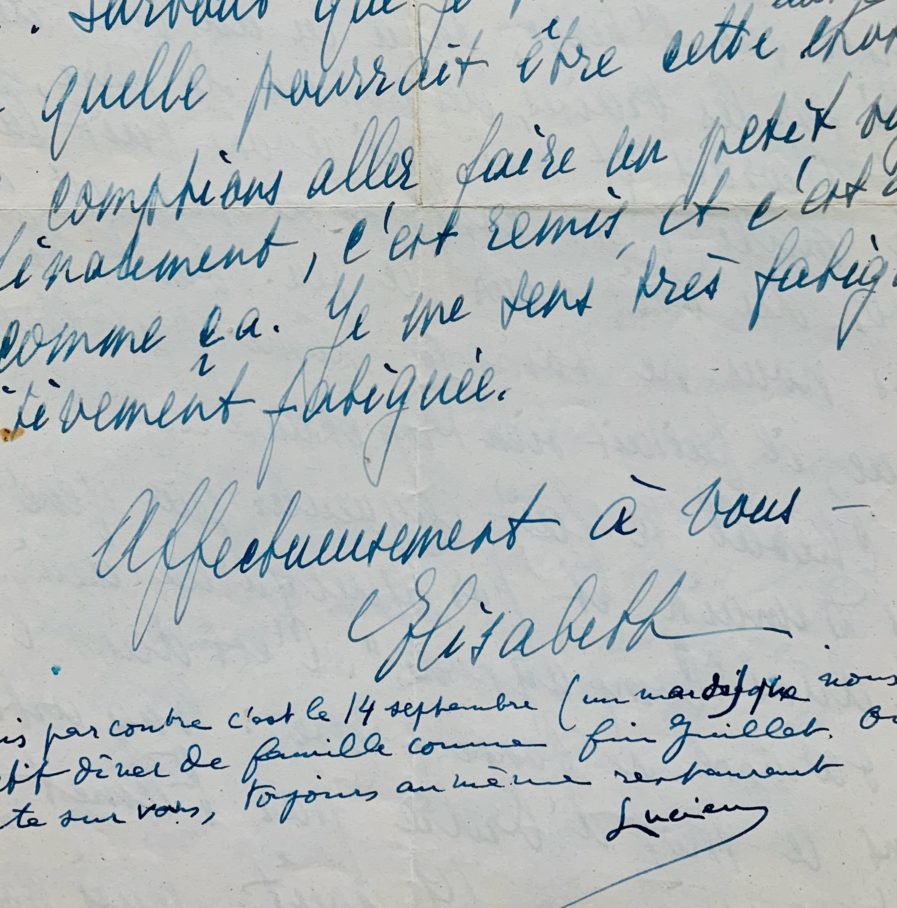 . Surtout que je
quelle pourrait être cette chos
comptions aller faire un petit vo
finalement, c'est remis, et c'est
comme ça. Je me sens très fatig
tivement fatiguée.
Affectueusement à vous –
Elisabeth
is par contre c'est le 14 septembre (un mardi) que nous
tit dîner de famille comme fin Juillet. On
te sur vous, toujours au même restaurant
Lucien